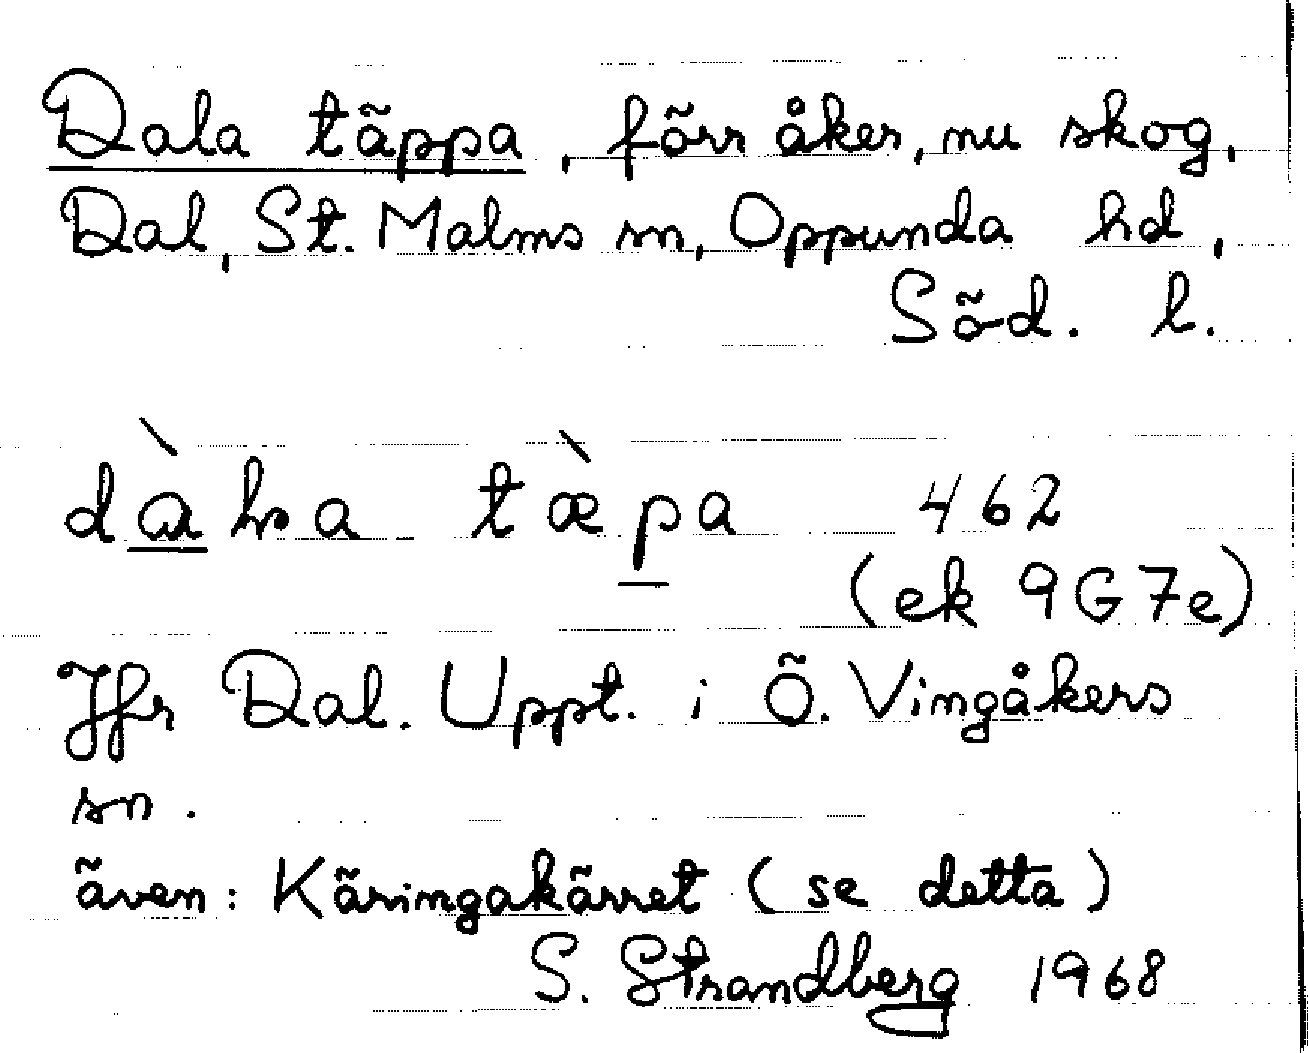 Dala täppa, förr åker, nu skog,
Dal, St. Malms sn, Oppunda hd,
Söd. l.
tæ̀pa 462
(ek 9G7e)
Jfr Dal. Uppt. i Ö. Vingåkers
sn.
även: Käringakärret (se detta)
S. Strandberg 1968